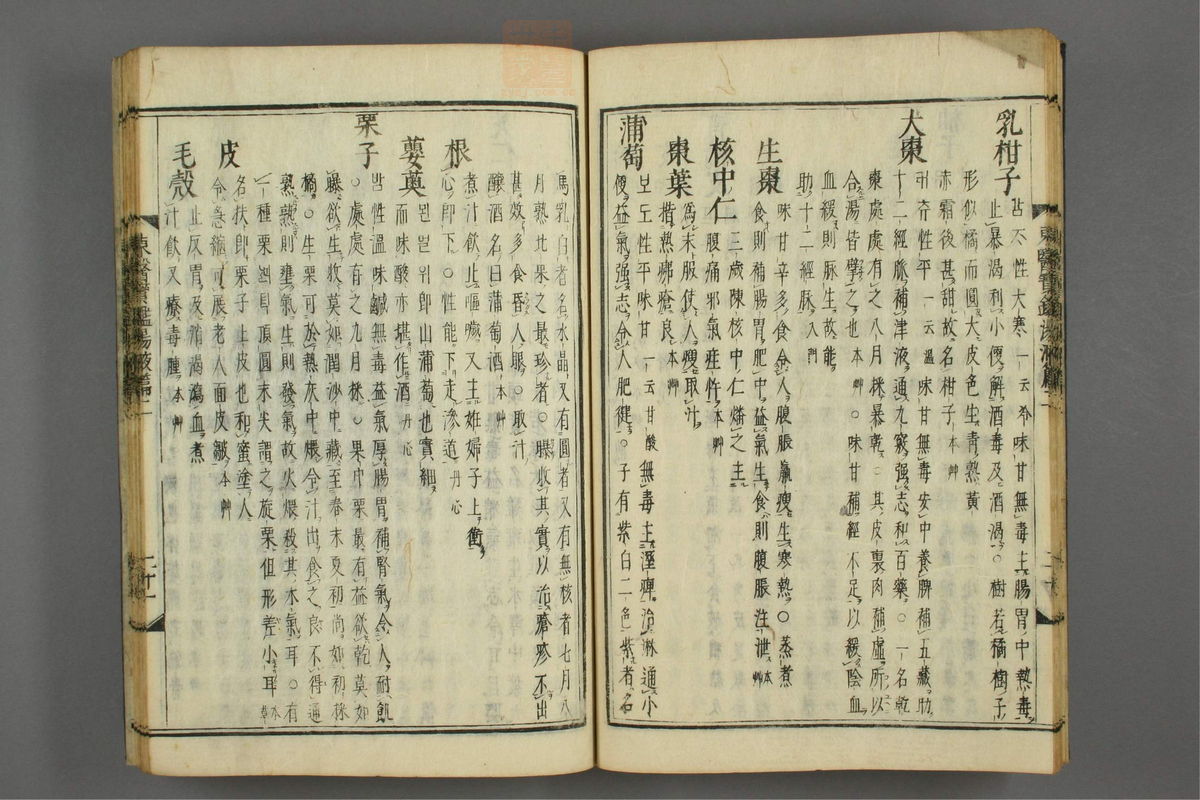 乳柑子
감ᄌᆞ性大寒一云冷味甘無毒主腸胃中熱毒
止暴渴利小便解酒毒及酒渴○樹若橘樹子
形似橘而圓大皮色生青熟黃
赤霜後甚甜故名柑子本艸
大棗
性平一云溫味甘無毒安中養脾補五藏助
十二經脉補津液通九竅强志和百藥○一名乾
棗處處有之八月採暴乾○其皮裏肉補虛所以
合湯皆擘之也本艸○味甘補經不足以緩陰血
血緩則脉生故能
助十二經脉入門
生棗
味甘辛多食令人腹脹羸瘦生寒熱○蒸煮
食則補腸胃肥中益氣生食則腹脹注泄本艸
核中仁
三歲陳核中仁燔之主
腹痛邪氣疰忤本艸
棗葉
爲末服使人瘦取汁
揩熱疿瘡良本艸
蒲萄
보도性平味甘一云甘酸無毒主濕痺治淋通小
便益氣强志令人肥健○子有紫白二色紫者名
馬乳白者名水晶又有圓者又有無核者七月八
月熟北果之最珍者○䑋收其實以治瘡疹不出
甚效多食昏人眼○取汁
釀酒名曰蒲萄酒本艸
根
煮汁飮止嘔噦又主姙婦子上衝
心即下○性能下走滲道丹心
蘡薁
멀위即山蒲萄也實細
而味酸亦堪作酒丹心
栗子
밤性溫味鹹無毒益氣厚腸胃補腎氣令人耐飢
○處處有之九月採○果中栗最有益欲乾莫如
曝欲生收莫如潤沙中藏至春末夏初尙如初採
摘○生栗可於熱灰中煨令汁出食之良不得通
熟熟則壅氣生則發氣故火煨殺其水氣耳○有
一種栗頂圓末尖謂之旋栗但形差小耳本草
皮
名扶即栗子上皮也和蜜塗人
令急縮可展老人面皮皺本艸
毛殼
止反胃及消渴瀉血煮
汁飮又療毒腫本艸
東醫寶鑑湯液篇二